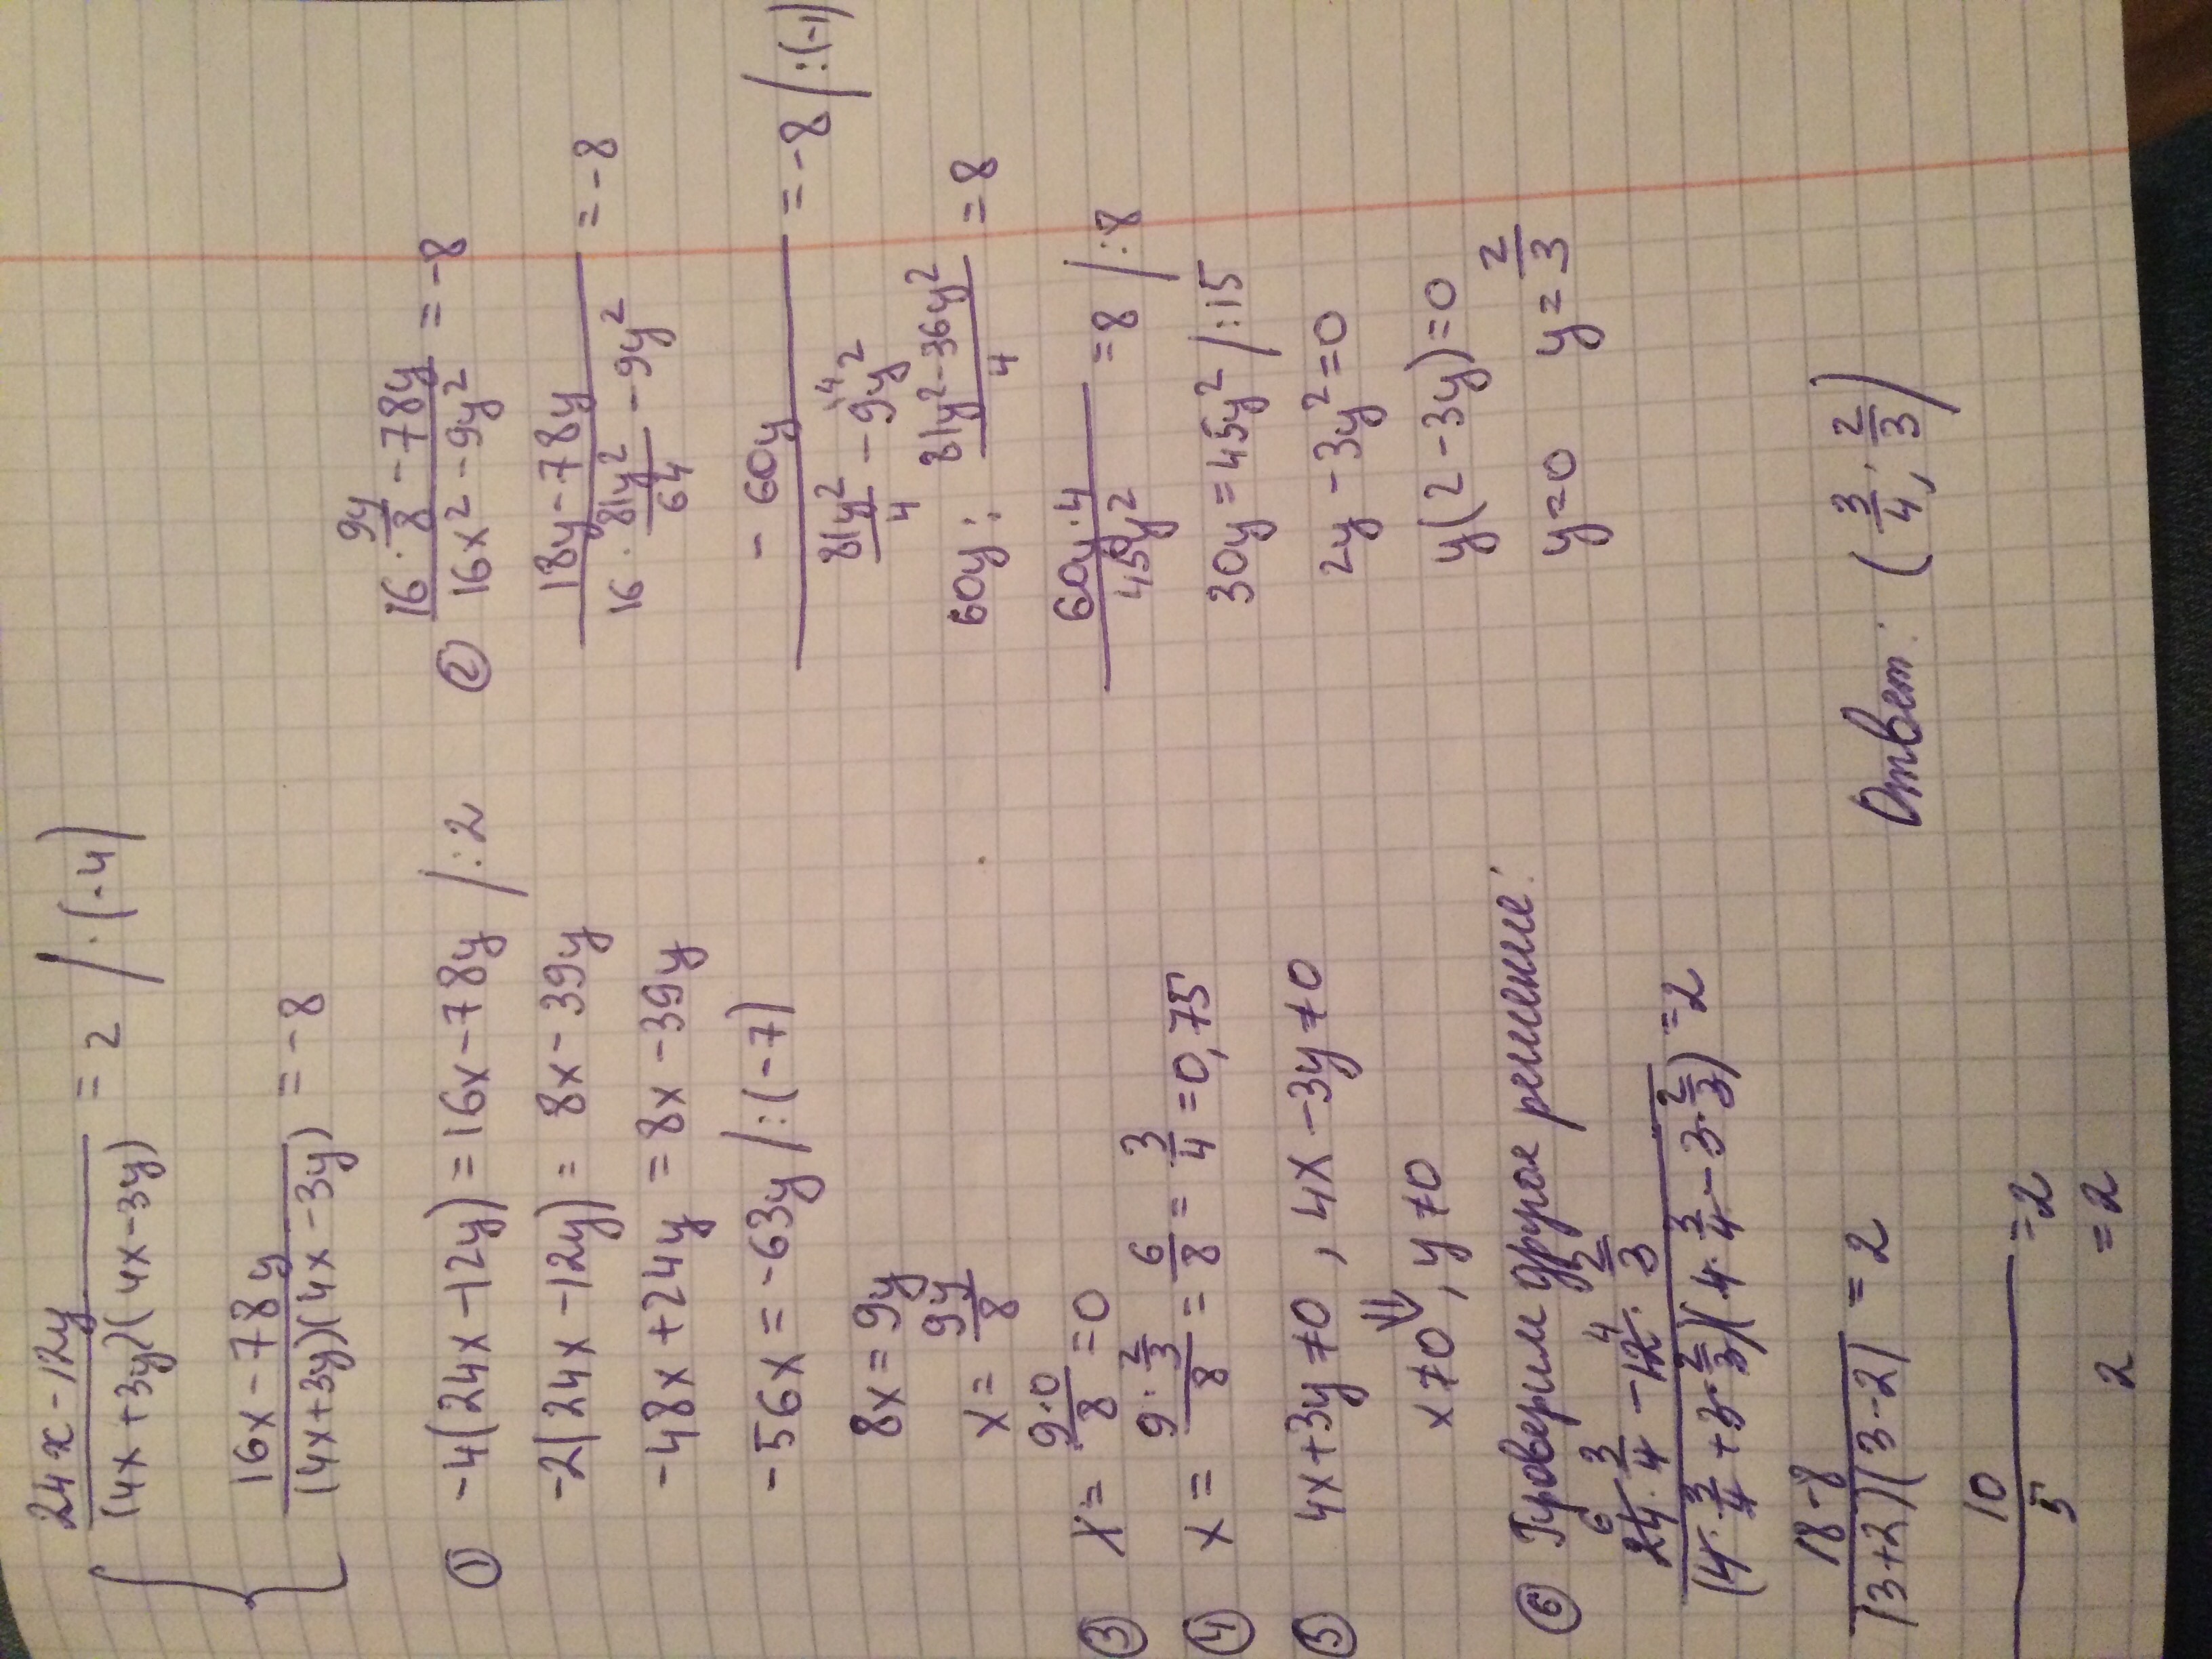 24x-12y / (4x+3y)(4x-3y) = 2 /·(-4)
16x-78y / (4x+3y)(4x-3y) = -8
① -4(24x-12y)=16x-78y /:2
-2(24x-12y)= 8x-39y
-48x+24y = 8x-39y
-56x=-63y /:(-7)
8x=9y
x= 9y/8
② 16·9y/8 -78y / 16x²-9y² = -8
18y-78y / 16·81y²/64 -9y² = -8
-60y / 81y²/4 -9y² = -8 /:(-1)
60y : 81y²-36y² / 4 = 8
60y·4 / 45y² = 8 /:8
30y=45y² /:15
2y-3y²=0
y(2-3y)=0
y=0 y= 2/3
③ x= 9·0/8 =0
④ x= 9·2/3 / 8 = 6/8 = 3/4 =0,75
⑤ 4x+3y≠0, 4x-3y≠0
⇓
x≠0, y≠0
⑥ Проверим другое решение:
24·3/4 -12·2/3 / (4·3/4+3·2/3)(4·3/4-3·2/3) =2
18-8 / (3+2)(3-2) = 2
10/5 =2
2 = 2
Ответ: (3/4; 2/3)